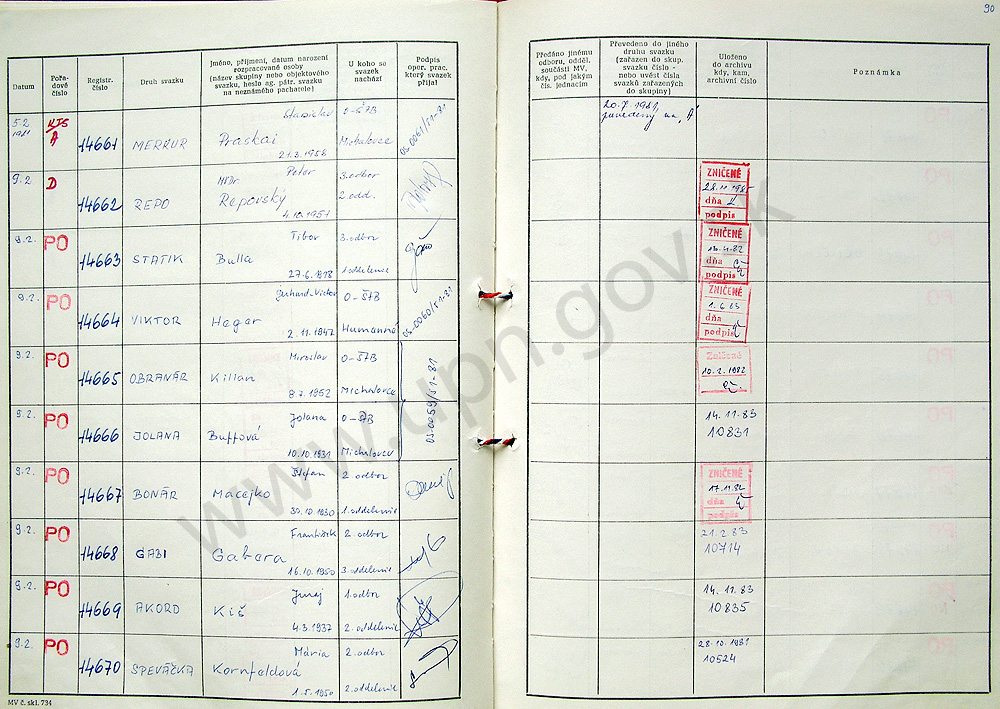 90
Datum
Pořa-
dové
číslo
Registr.
číslo
Druh svazku
Jméno, příjmení, datum narození
rozpracované osoby
(název skupiny nebo objektového
svazku, heslo ag. pátr. svazku
na neznámého pachatele)
U koho se
svazek
nachází
Podpis
oper. prac.
který svazek
přijal
Předáno jinému
odboru, odděl.
součásti MV,
kdy, pod jakým
čís. jednacím
Převedeno do jiného
druhu svazku
(zařazen do skup.
svazku číslo -
nebo uvést čísla
svazků zařazených
do skupiny)
Uloženo
do archivu
kdy, kam,
archivní číslo
Poznámka
5.2.
1981
A
14661
MERKUR
Stanislav
Praskai
21.3.1958
O-ŠTB
Michalovce
05-0061/51-81
20.7.1981,
prevedený na "A"
9.2.
D
14662
REPO
MVDr. Peter
Repovský
4.10.1951
3. odbor
2. odd.
ZNIČENÉ
dňa
podpis
9.2.
PO
14663
STATIK
Tibor
Bulla
27.6.1918
3. odbor
1. oddelenie
ZNIČENÉ
dňa
podpis
9.2.
PO
14664
VIKTOR
Gerhard-Victor
Hegar
2.11.1947
O-ŠTB
Humenné
05-0060/51-81
ZNIČENÉ
1.6.83
dňa
podpis
9.2.
PO
14665
OBRANÁR
Miroslav
Kilian
8.7.1952
O-ŠTB
Michalovce
05-0059/51-81
Zničené
10.2.1982
9.2.
PO
14666
JOLANA
Jolana
Buffová
10.10.1931
O-ŠTB
Michalovce
14.11.83
10831
9.2.
PO
14667
BONÁR
Štefan
Macejko
30.10.1930
2. odbor
1. oddelenie
ZNIČENÉ
17.11.82
dňa
podpis
9.2.
PO
14668
GABI
František
Gabera
16.10.1950
2. odbor
3. oddelenie
21.2.83
10714
9.2.
PO
14669
AKORD
Juraj
Kiš
4.3.1937
1. odbor
2. oddelenie
14.11.83
10835
9.2.
PO
14670
SPEVÁČKA
Mária
Kornfeldová
1.5.1950
2. odbor
2. oddelenie
28.10.1981
10524
MV č. skl. 734
www.upn.gov.sk